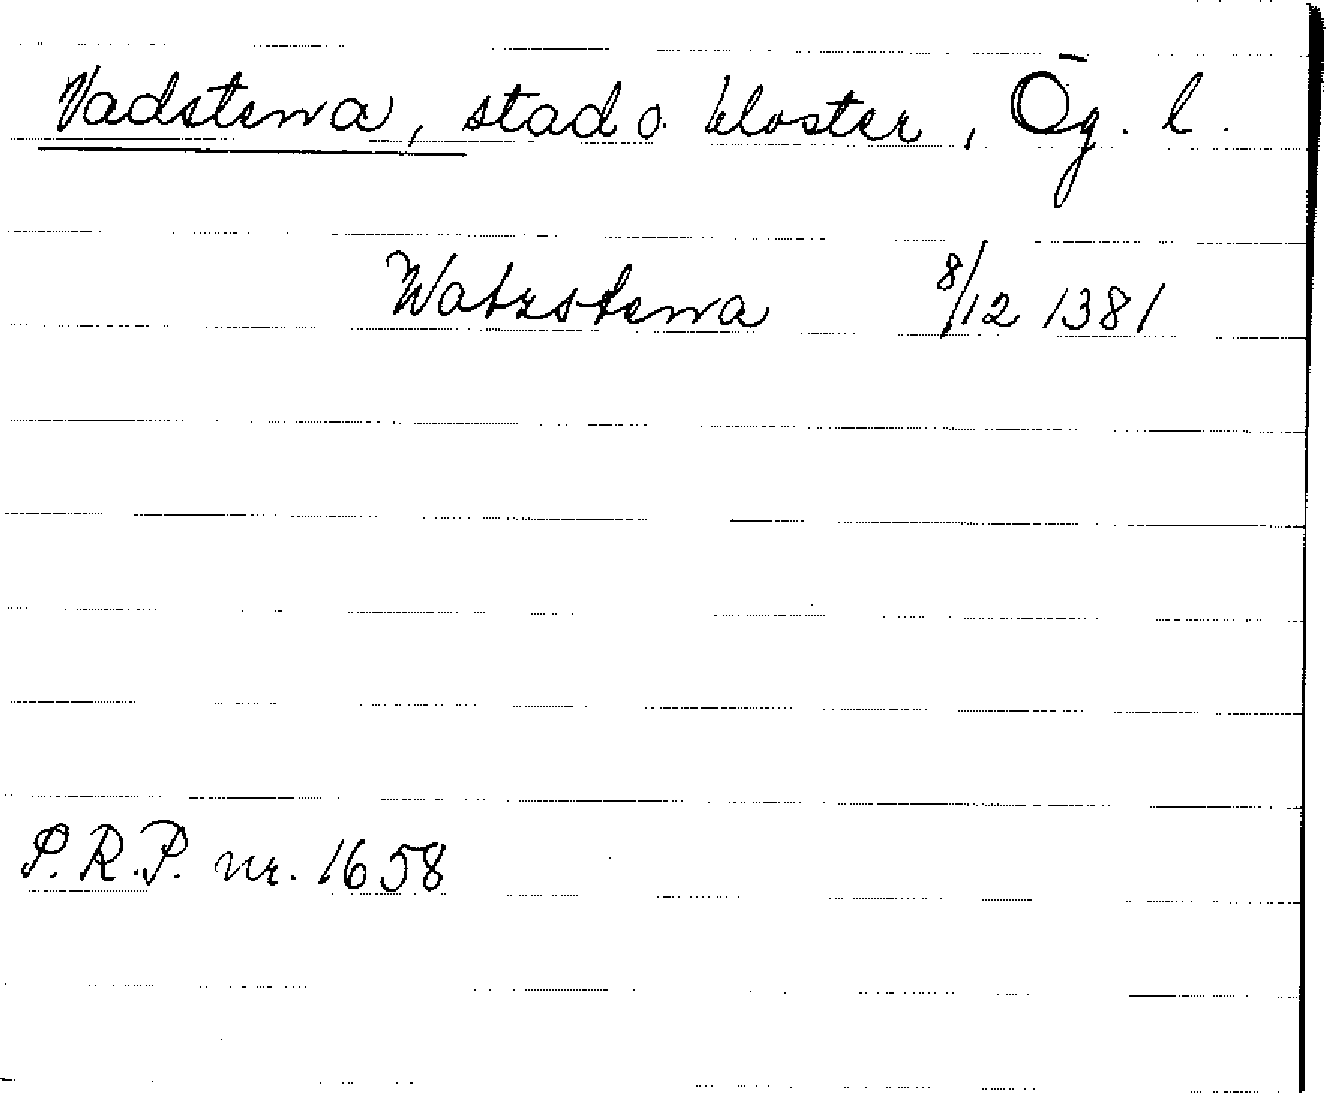 Vadstena, stad o. kloster, Ög. l.
Watzstena 8/12 1381
S.R.P. nr. 1658